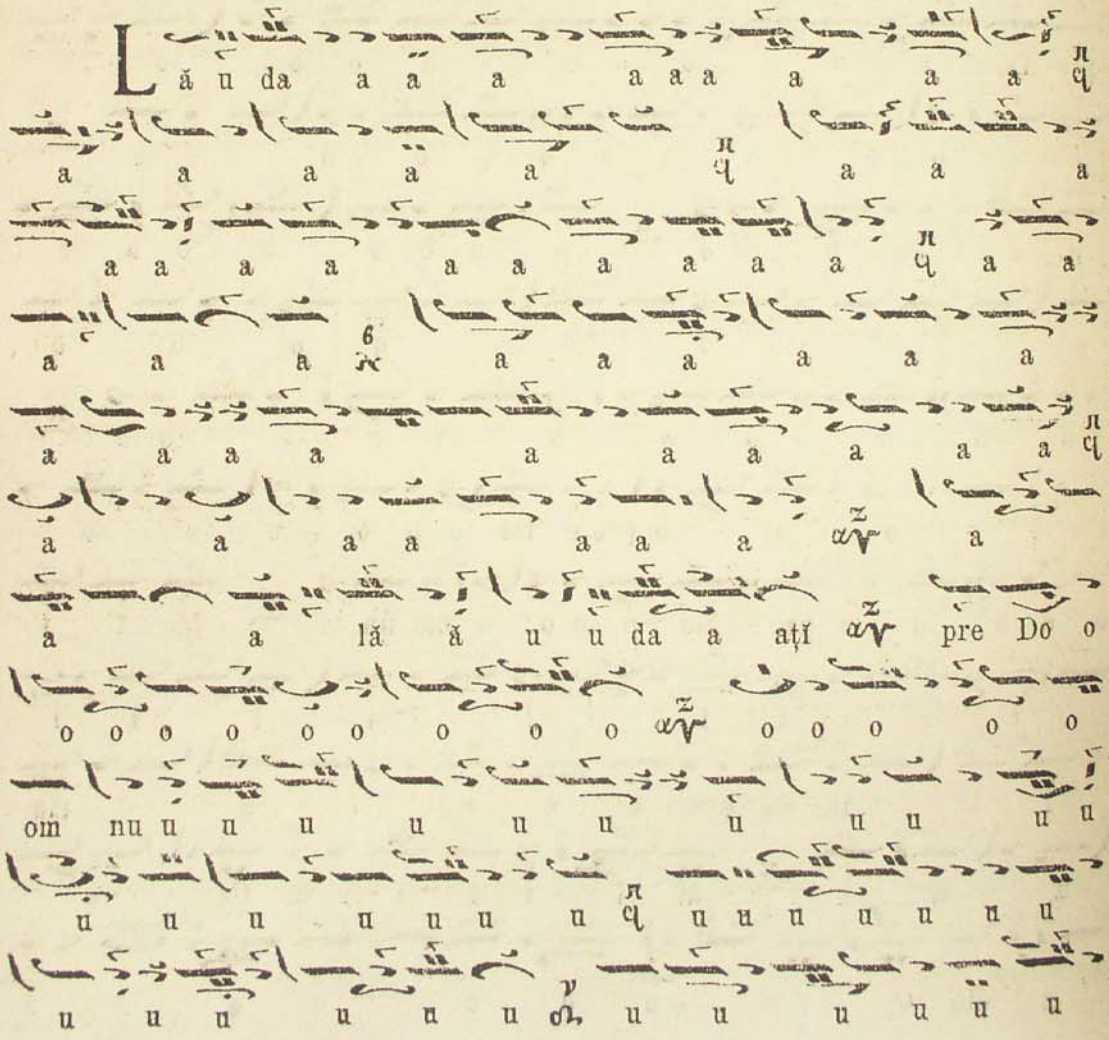 Lă u da a a a a a a a a a
a a a a a a a a
a a a a a a a a a a a a
a a a a a a a a a
a a a a a a a a a a
ă ă a a a a a a
a a lă ă u u da a ațĭ pre Do o
o o o o o o o o o o o o o o
om nu u u u u u u u u u u u
u u u u u u u u u u u u u u
u u u u u u u u u u u u